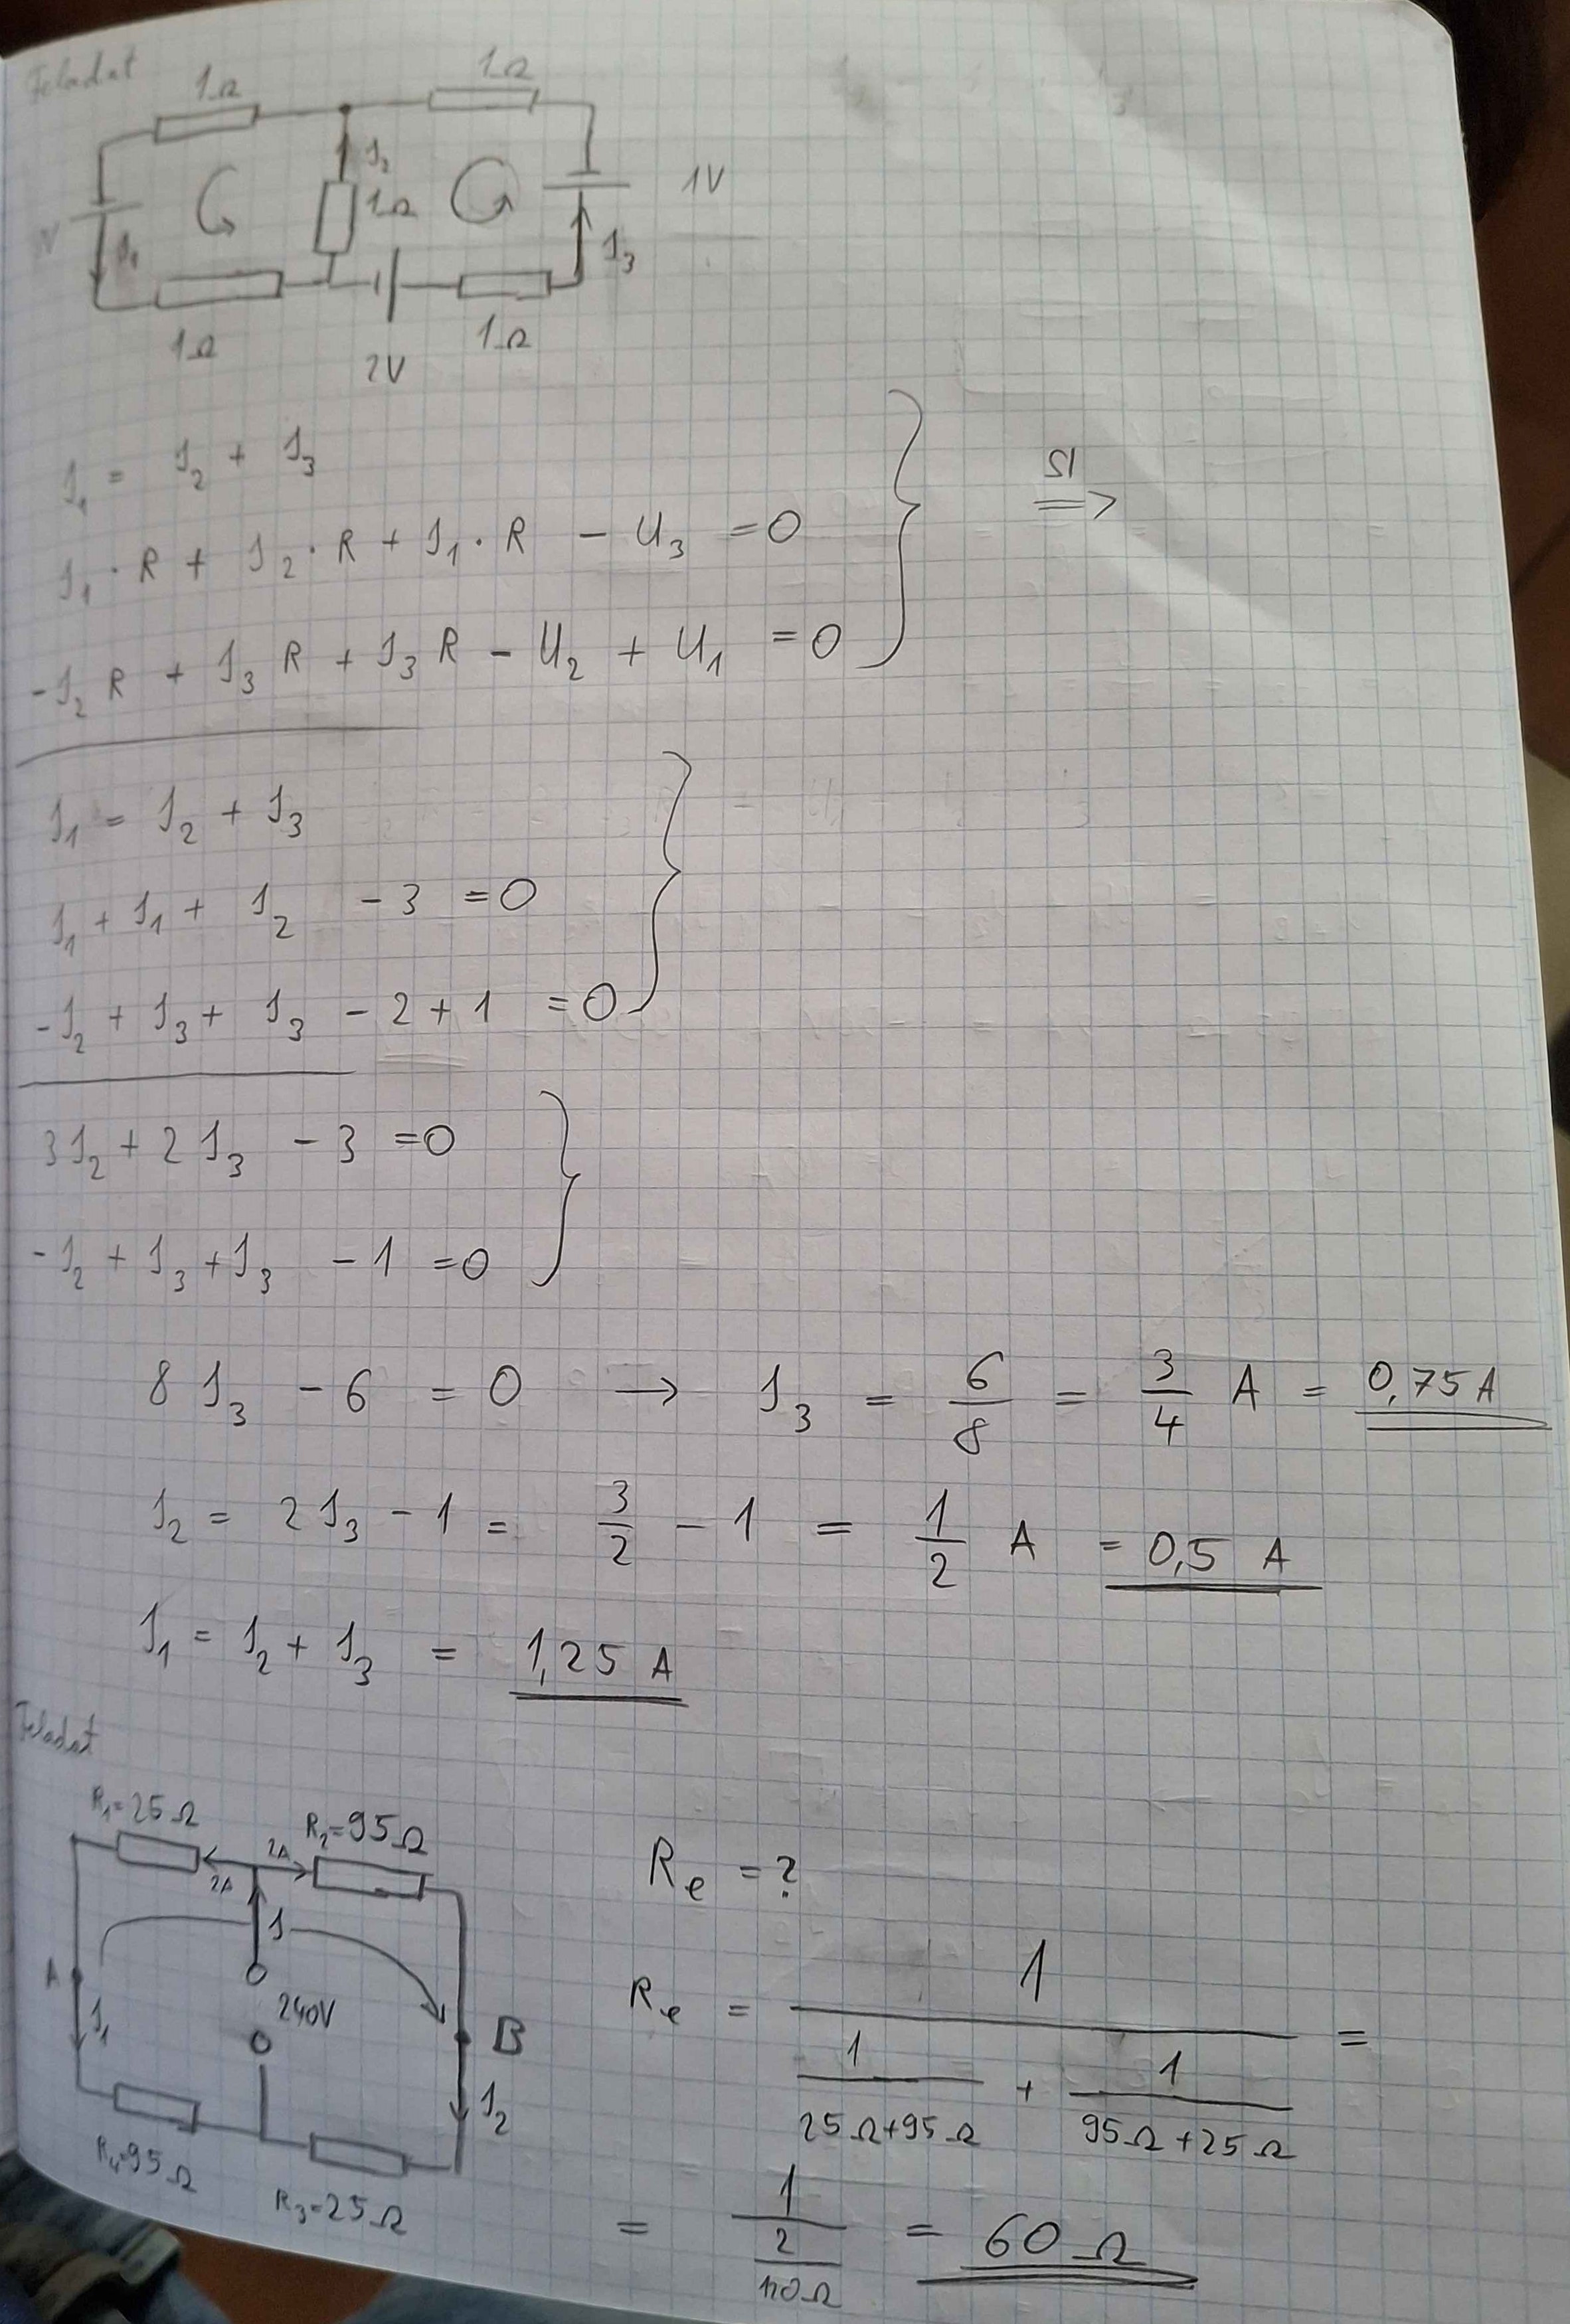 Feladat
1Ω 1Ω
I₂
1Ω 1V
V I₁ I₃
1Ω 2V 1Ω
I₁ = I₂ + I₃
I₁ · R + I₂ · R + I₁ · R - U₃ = 0
SI ⇒
-I₂ R + I₃ R + I₃ R - U₂ + U₁ = 0
I₁ = I₂ + I₃
I₁ + I₁ + I₂ - 3 = 0
-I₂ + I₃ + I₃ - 2 + 1 = 0
3I₂ + 2I₃ - 3 = 0
-I₂ + I₃ + I₃ - 1 = 0
8 I₃ - 6 = 0 → I₃ = 6/8 = 3/4 A = 0,75 A
I₂ = 2I₃ - 1 = 3/2 - 1 = 1/2 A = 0,5 A
I₁ = I₂ + I₃ = 1,25 A
Feladat
R₁=25Ω R₂=95Ω
2A 2A
I
A 240V B
I₁ I₂
R₄=95Ω R₃=25Ω
Rₑ = ?
Rₑ = 1/(1/(25Ω+95Ω) + 1/(95Ω+25Ω)) =
= 1/(2/120Ω) = 60Ω